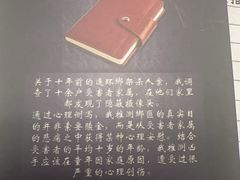 关于十年前的连环绑架杀人案，我
调查了十余户受害者家属，在他们家里
都发现了隐蔽摄像头。
通过心理侧写，我推测绑匪的真实目
的并非索要赎金，而是从受害者家属
的悲痛之中获得某种心理安慰。结合
受害者的平均十岁的年龄，我推测凶
手应该在童年因家庭原因，遭受过很
严重的心理创伤。